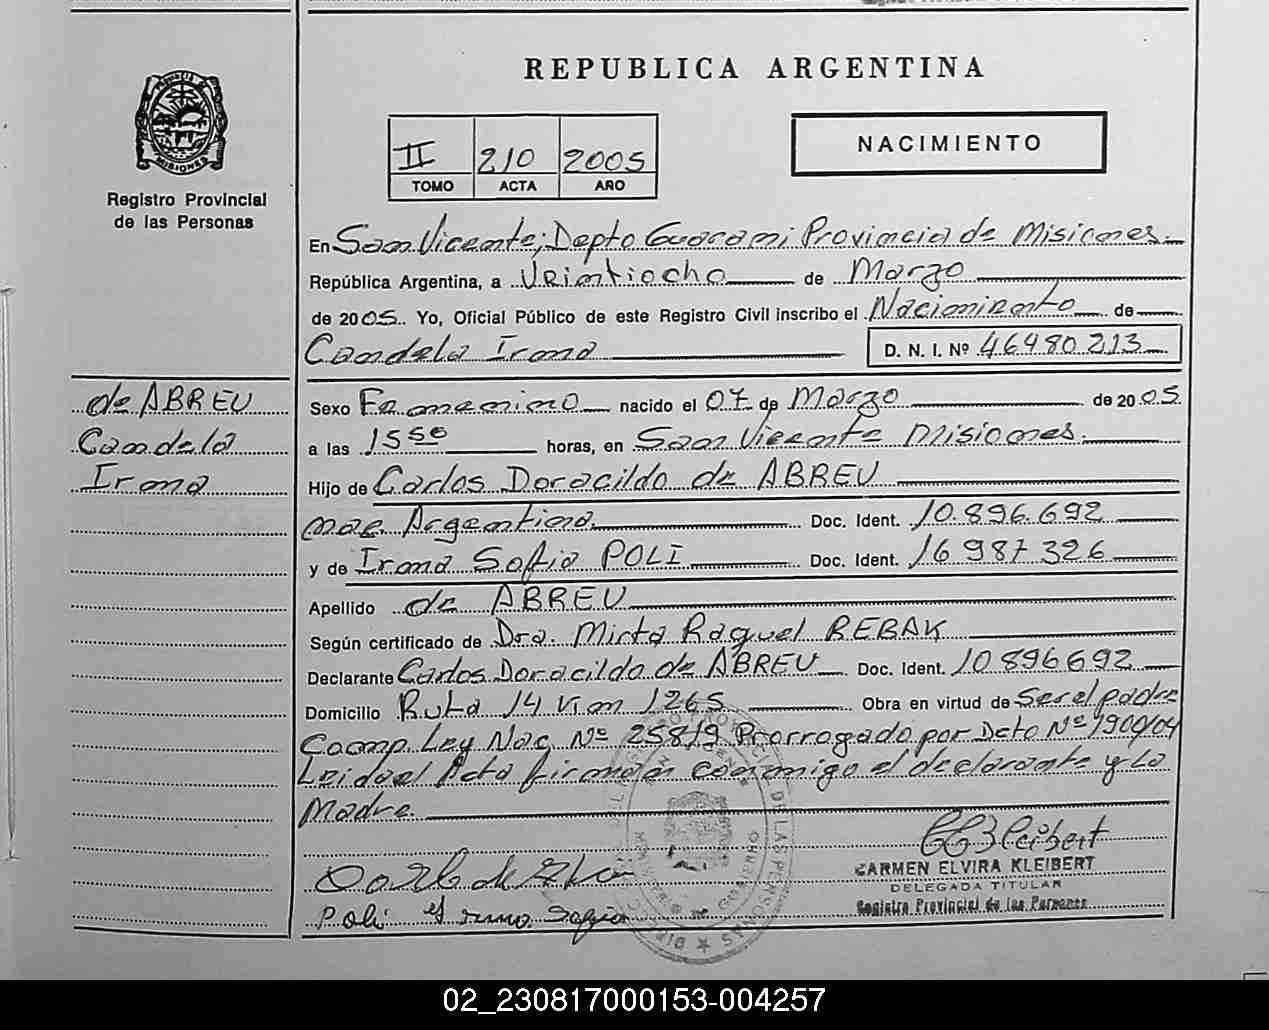 REPUBLICA ARGENTINA
PROVINCIA DE
MISIONES
Registro Provincial
de las Personas
II 210 2005
TOMO ACTA AÑO
NACIMIENTO
En San Vicente; Depto Guarani Provincia de Misiones.
República Argentina, a Veintiocho de Marzo
de 2005. Yo, Oficial Público de este Registro Civil inscribo el Nacimiento de
Candela Irma D. N. I. Nº 46480213
de ABREU
Candela
Irma
Sexo Femenino nacido el 07 de Marzo de 2005
a las 15 50 horas, en San Vicente Misiones.
Hijo de Carlos Doracildo de ABREU
nac. Argentina. Doc. Ident. 10.896.692
y de Irma Sofia POLI Doc. Ident. 16 987 326
Apellido de ABREU
Según certificado de Dra. Mirta Raquel REBAK
Declarante Carlos Doracildo de ABREU Doc. Ident. 10 896692
Domicilio Ruta 14 Km 1265 Obra en virtud de Ser el padre
Comp. Ley Nac. Nº 25819 Prorrogado por Dcto Nº 1900/04
Leida el Acta firman conmigo el declarante y la
Madre.
CARMEN ELVIRA KLEIBERT
DELEGADA TITULAR
Registro Provincial de las Personas
Poli Irma Sofia
02_230817000153-004257